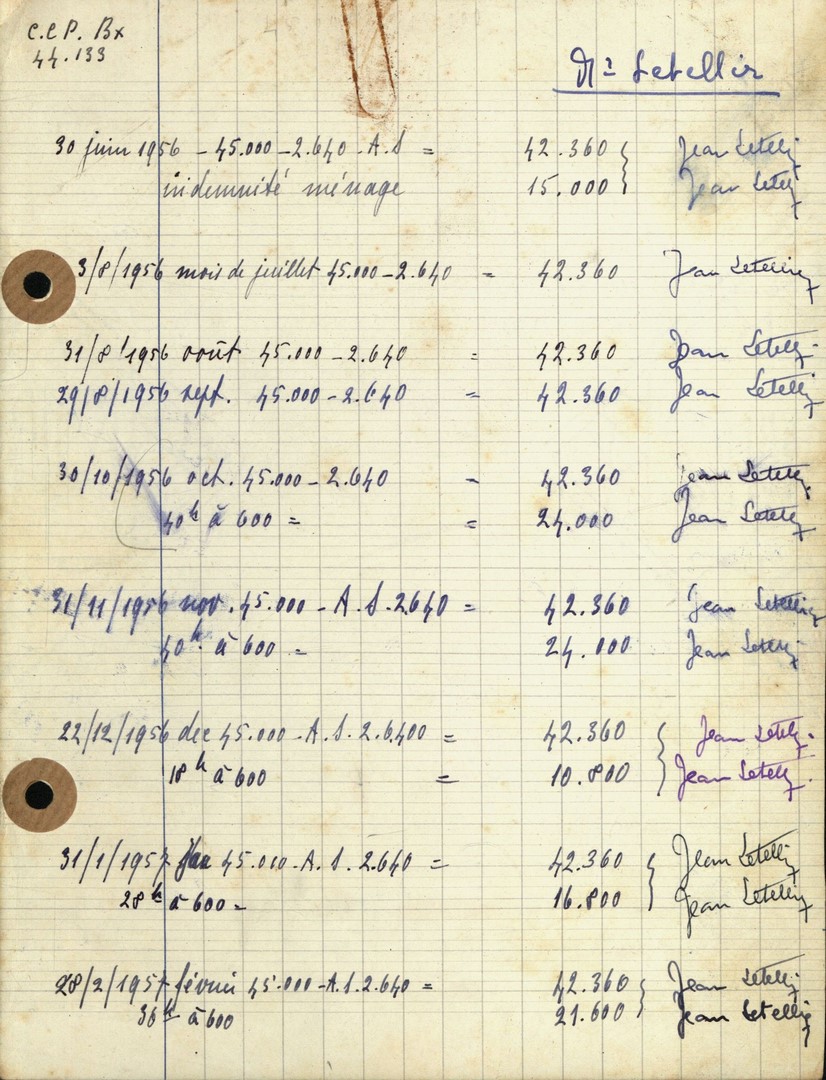 C.C.P. Bx
44.133
Mr Letellier
30 juin 1956 - 45.000 - 2.640 - A.S = 42.360 Jean Letellier
indemnité ménage 15.000 Jean Letellier
3/8/1956 mois de juillet 45.000 - 2.640 = 42.360 Jean Letellier
31/8/1956 août 45.000 - 2.640 = 42.360 Jean Letellier
29/8/1956 sept. 45.000 - 2.640 = 42.360 Jean Letellier
30/10/1956 oct. 45.000 - 2.640 = 42.360 Jean Letellier
40h à 600 = = 24.000 Jean Letellier
31/11/1956 nov. 45.000 - A.S. 2640 = 42.360 Jean Letellier
40h à 600 = 24.000 Jean Letellier
22/12/1956 dec 45.000 - A.S. 2.6400 = 42.360 Jean Letellier
18h à 600 = 10.800 Jean Letellier
31/1/1957 Jan 45.000 - A.S. 2.640 = 42.360 Jean Letellier
28h à 600 = 16.800 Jean Letellier
28/2/1957 février 45.000 - A.S. 2.640 = 42.360 Jean Letellier
36h à 600 21.600 Jean Letellier